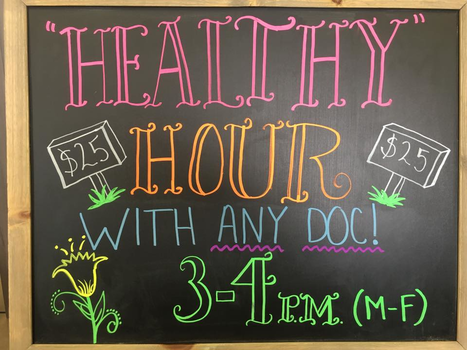 "HEALTHY"
$25 HOUR $25
WITH ANY DOC!
3-4 P.M. (M-F)